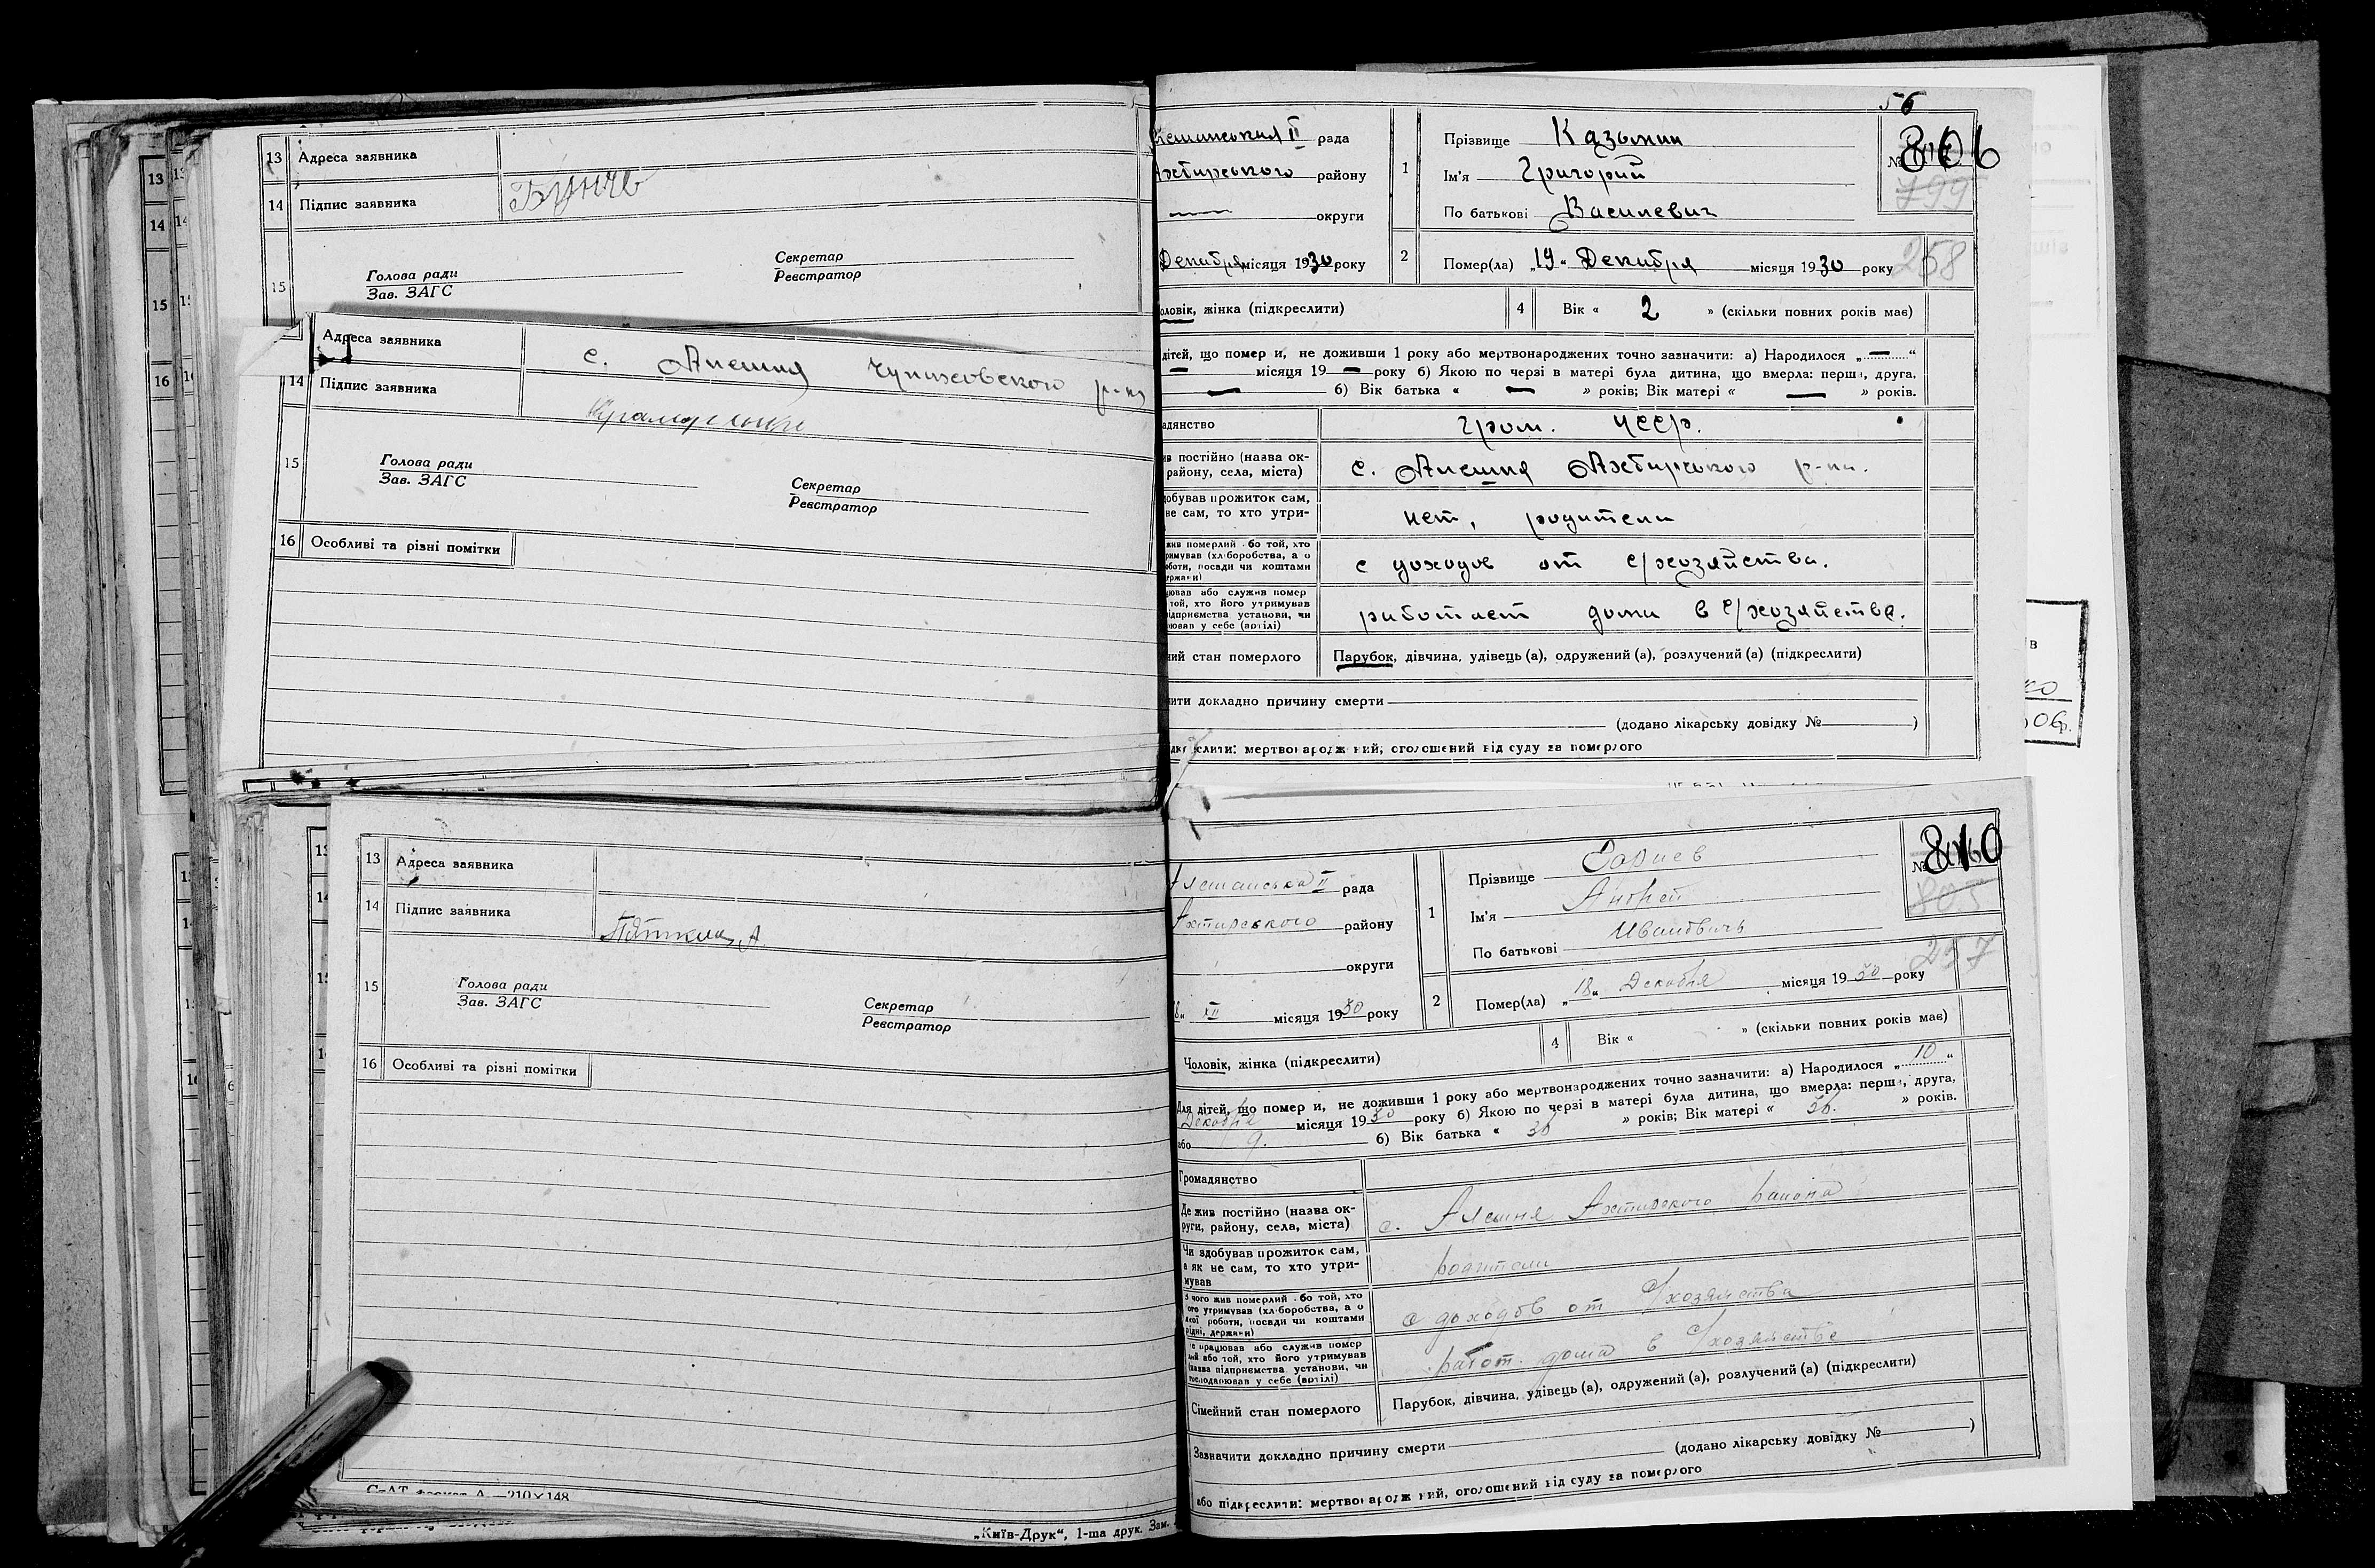 13 Адреса заявника
14 Підпис заявника
15 Голова ради
Зав. ЗАГС
Секретар
Реєстратор
Адреса заявника с. Алешня Чупаховского р-на
14 Підпис заявника
15 Голова ради
Зав. ЗАГС
Секретар
Реєстратор
16 Особливі та різні помітки
56
рада
Ахтирського району
— округи
Декабря місяця 1930 року
1 Прізвище Казьмин
Ім'я Григорий
По батькові Василевич
№ 806
799
2 Помер(ла) „19“ Декабря місяця 1930 року
258
оловік, жінка (підкреслити)
4 Вік « 2 » (скільки повних років має)
дітей, що помер и, не доживши 1 року або мертвонароджених точно зазначити: а) Народилося „—“
— місяця 19 — року б) Якою по черзі в матері була дитина, що вмерла: перш, друга,
— б) Вік батька « — » років; Вік матері « — » років.
адянство гром. УССР.
ив постійно (назва ок-
району, села, міста) с. Алешня Ахтирського р-на.
добував прожиток сам,
не сам, то хто утри- нет, родители
жив померлий бо той, хто
римував (хл боробства, а о
оботи, посади чи коштами
ержави) с доходов от с/хозяйства.
цював або служив помер
той, хто його утримував
ідприємства установи, чи
ював у себе (артілі) работает дома в с/хозяйстве.
ний стан померлого Парубок, дівчина, удівець (а), одружений (а), розлучений (а) (підкреслити)
чити докладно причину смерти
(додано лікарську довідку № )
слити: мертвонароджений, оголошений від суду за померлого
13 Адреса заявника
14 Підпис заявника
15 Голова ради
Зав. ЗАГС
Секретар
Реєстратор
16 Особливі та різні помітки
„Київ-Друк“, 1-ша друк. Зам.
рада
Ахтирського району
округи
XII місяця 1930 року
1 Прізвище
Ім'я Андрей
По батькові Ивановичь
№ 810
805
2 Помер(ла) „18“ Декабря місяця 1930 року
257
Чоловік, жінка (підкреслити)
4 Вік « » (скільки повних років має)
Для дітей, що помер и, не доживши 1 року або мертвонароджених точно зазначити: а) Народилося „10“
Декабря місяця 1930 року б) Якою по черзі в матері була дитина, що вмерла: перш, друга,
або 9. б) Вік батька « » років; Вік матері « » років.
Громадянство
Де жив постійно (назва ок-
руги, району, села, міста) с. Алешня Ахтирского района
Чи здобував прожиток сам,
а як не сам, то хто утри-
мував родители
З чого жив померлий бо той, хто
ого утримував (хл боробства, а о
якої роботи, посади чи коштами
рідні, держави) с доходов от с/хозяйства
е працював або служив помер
лий або той, хто його утримував
(назва підприємства установи, чи
господарював у себе (артілі) работ. дома в с/хозяйстве
Сімейний стан померлого Парубок, дівчина, удівець (а), одружений (а), розлучений (а) (підкреслити)
Зазначити докладно причину смерти
(додано лікарську довідку № )
або підкреслити: мертвонароджений, оголошений від суду за померлого